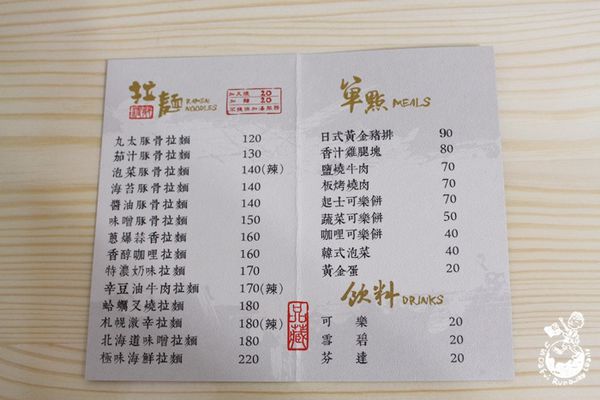 拉麵 RAMEN NOODLES
加叉燒 20
加麵 20
九太豚骨拉麵 120
茄汁豚骨拉麵 130
泡菜豚骨拉麵 140(辣)
海苔豚骨拉麵 140
醬油豚骨拉麵 140
味噌豚骨拉麵 150
蔥爆蒜香拉麵 160
香醇咖哩拉麵 160
特濃奶味拉麵 170
辛豆油牛肉拉麵 170(辣)
蛤蠣叉燒拉麵 180
札幌激辛拉麵 180(辣)
北海道味噌拉麵 180
極味海鮮拉麵 220
品藏
單點 MEALS
日式黃金豬排 90
香汁雞腿塊 80
鹽燒牛肉 70
板烤燒肉 70
起士可樂餅 70
蔬菜可樂餅 50
咖哩可樂餅 40
韓式泡菜 40
黃金蛋 20
飲料 DRINKS
可樂 20
雪碧 20
芬達 20